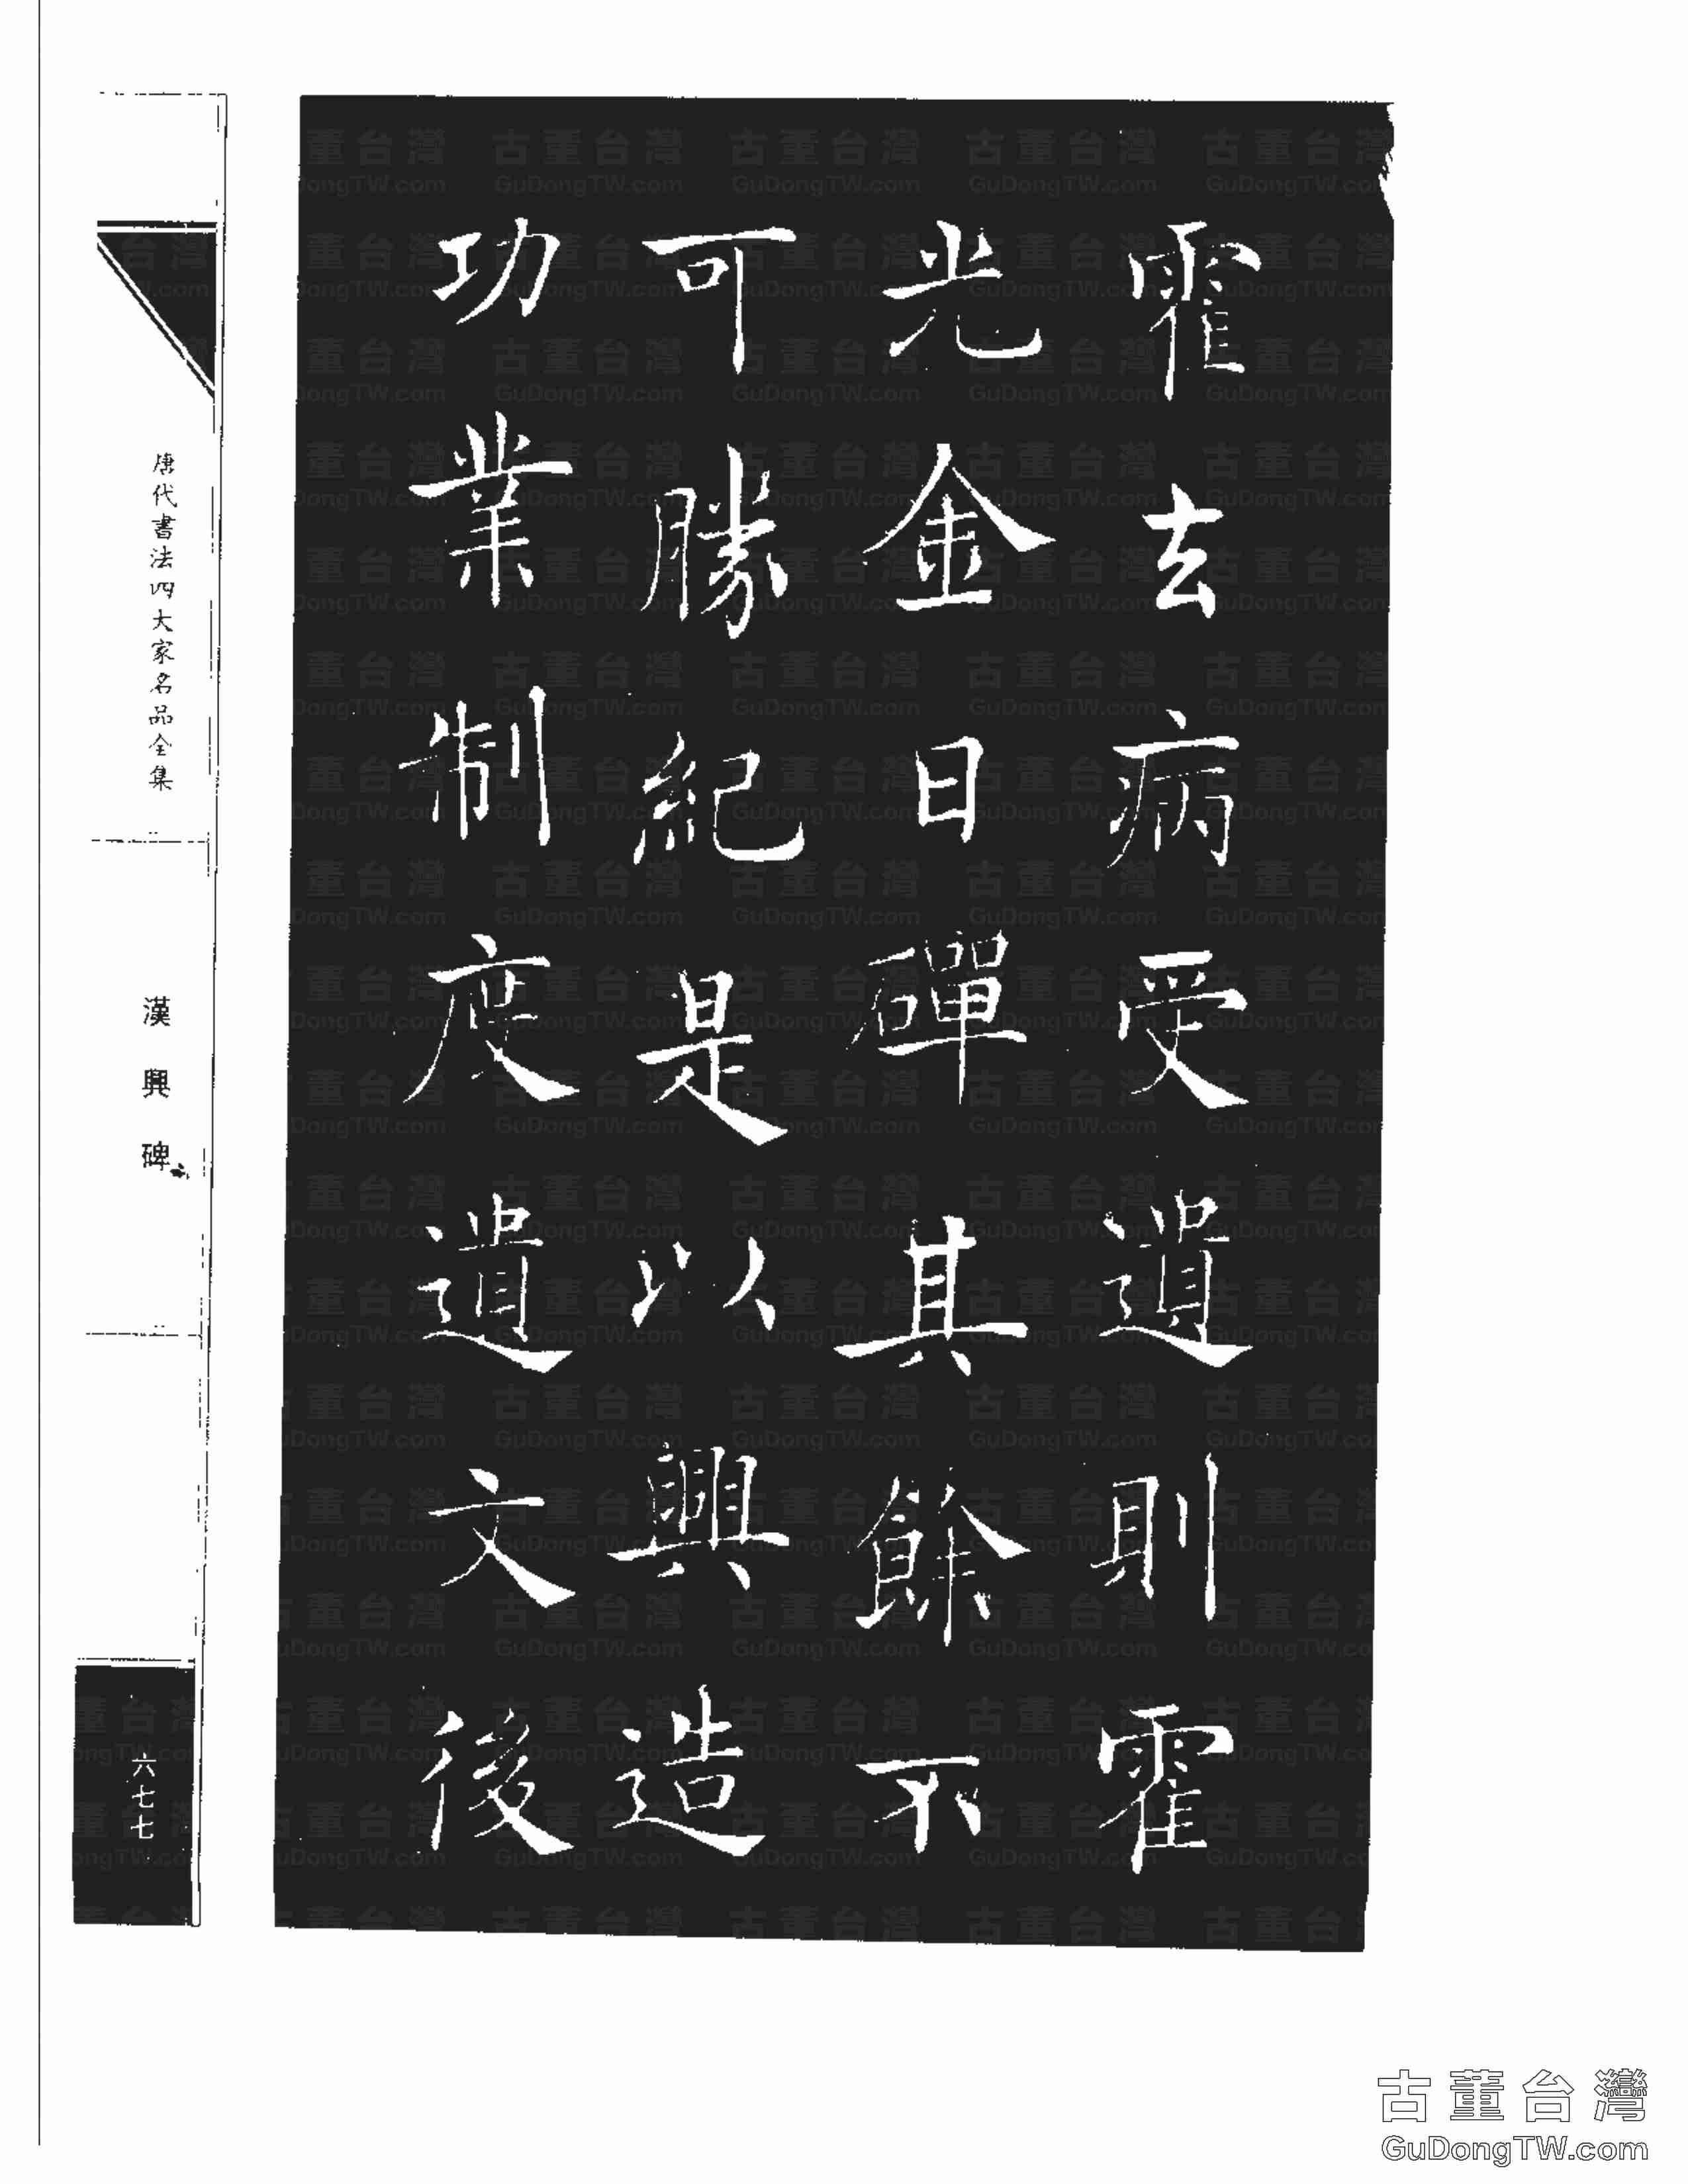 霍去病受遺則霍
光金日磾其餘不
可勝紀是以興造
功業制度遺文後
唐代書法四大家名品全集
漢興碑
六七七
古董台灣
GuDongTW.com